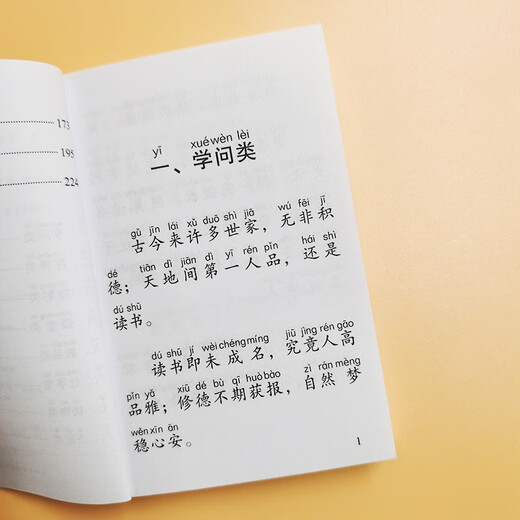 173
195
224
yī xué wèn lèi
一、学问类
gǔ jīn lái xǔ duō shì jiā wú fēi jī
古今来许多世家，无非积
dé tiān dì jiān dì yī rén pǐn hái shì
德；天地间第一人品，还是
dú shū
读书。
dú shū jí wèi chéng míng jiū jìng rén gāo
读书即未成名，究竟人高
pǐn yǎ xiū dé bù qī huò bào zì rán mèng
品雅；修德不期获报，自然梦
wěn xīn ān
稳心安。
1